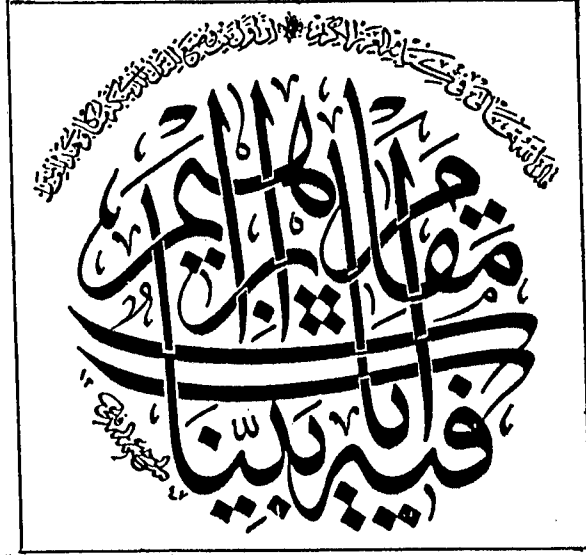 قال الله تعالى في كتابه العزيز الكريم ان اول بيت وضع للناس للذي ببكة مباركا وهدى للعالمين
فيه آيات بينات مقام إبراهيم